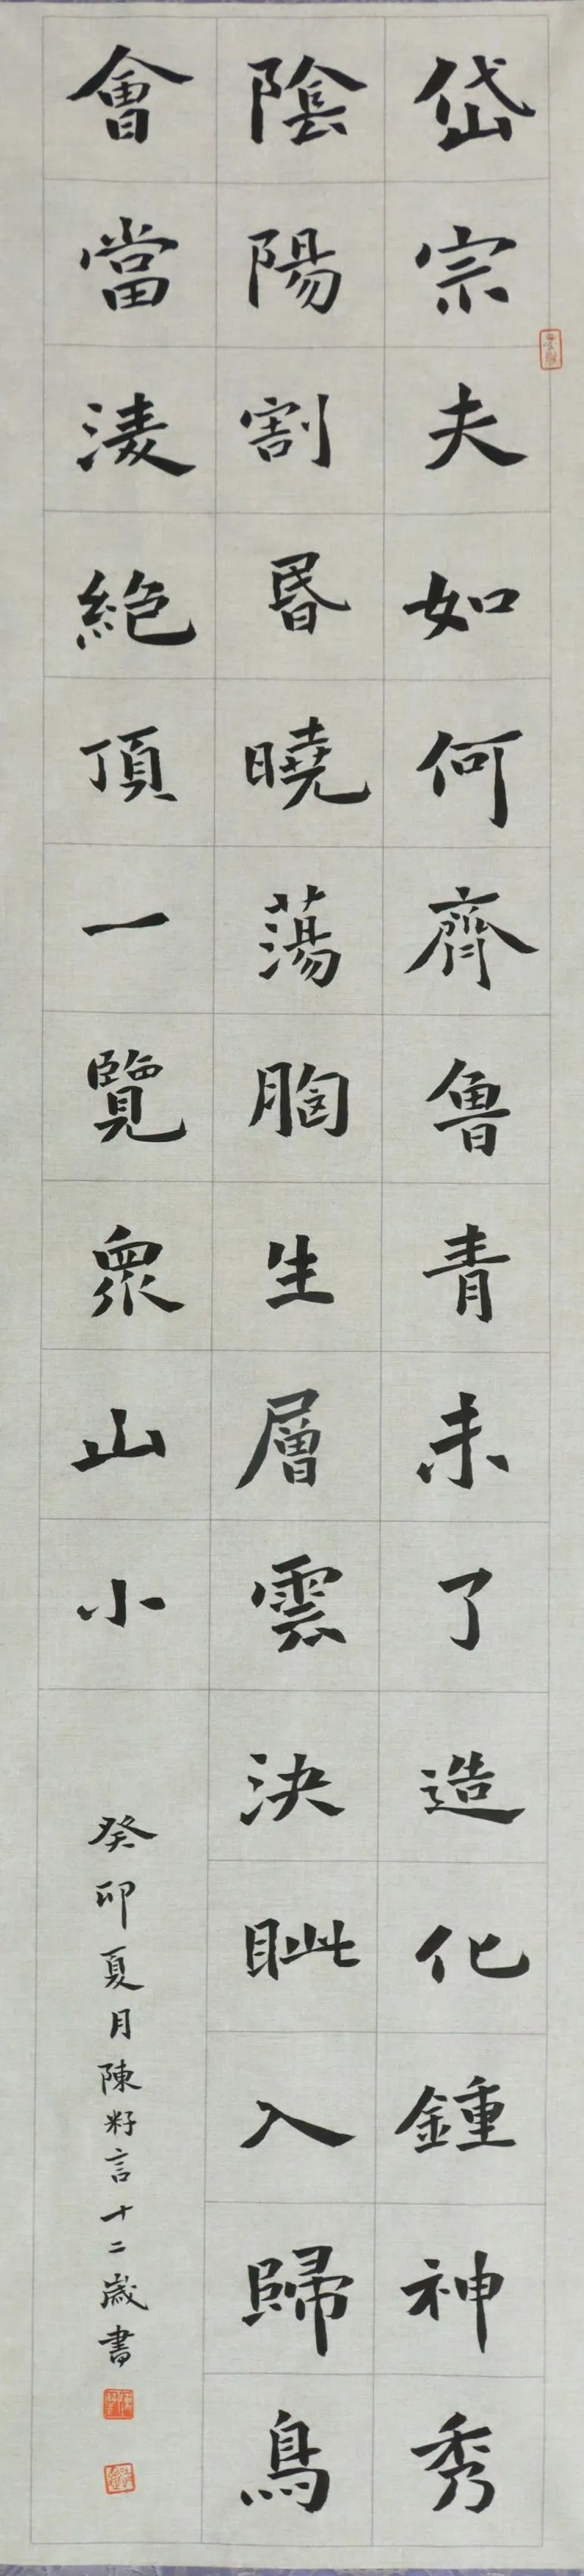 岱宗夫如何齊魯青未了造化鍾神秀
陰陽割昏曉蕩胸生層雲決眦入歸鳥
會當淩絕頂一覽衆山小
癸卯夏月陳籽言十二歲書